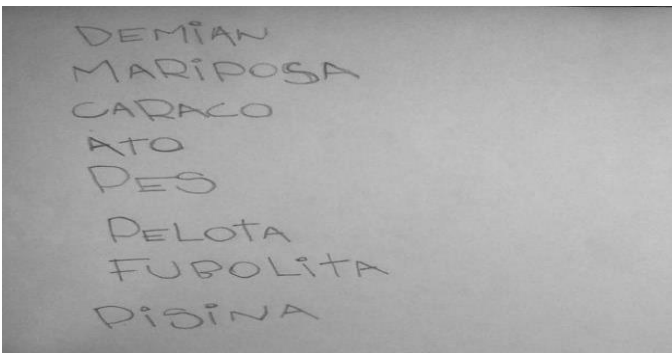 DEMiAN
MARiPOSA
CARACO
ATO
PES
PELOTA
FUBOLiTA
PiSiNA